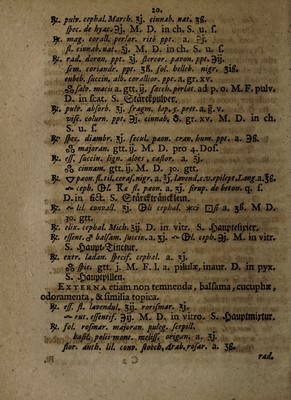 20.
℞. pulv. cephal. March. ʒj. cinnab. nat. ʒß.
spec. de hyac. ℈j. M. D. in ch. S. u. s.
℞. mag. corall. perlar. rité ppt. a. ℈j.
fl. cinnab. nat. ʒj. M. D. in ch. S. u. s.
℞. rad. doron. ppt. ʒj. stercor. pavon. ppt. ℈ij.
sem. coriandr. ppt. ʒß. fol. helleb. nigr. ʒiß.
cubeb. succin. alb. corallior. ppt. a. gr. xv.
macis a. gtt. ij. sacch. perlat. ad p. o. M. F. pulv.
D. in scat. S. Stärckpulver.
℞. pulv. absorb. ʒj. fragm. lap. 5. pret. a. g. v.
visc. colurn. ppt. ℈j. cinnab. gr. xv. M. D. in ch.
S. u. s.
℞. spec. diambr. ʒj. fecul. paon. cran. hum. ppt. a. ℈ß.
majoran. gtt. ij. M. D. pro 4. Dos.
℞. ess. succin. lign. aloes, castor. a. ʒj.
cinnam. gtt. ij. M. D. 30. gtt.
D. in S. Stärcktränckl
℞. lil. convall. ʒj. cephal. a. ʒß. M D.
30. gtt.
℞. elix. cephal. Mich. ʒij. D. in vitr. S. Hauptelixier.
℞. essent. balsam. succin. a. ʒj. ceph. ℈j. M. in vitr.
S. Haupt-Tinctur.
℞. extr. ladan. specif. cephal. a. ʒj.
spic. gtt. j. M. F. l. a. pilulæ, inaur. D. in pyx.
S. Hauptpillen.
EXTERNA etiam non temnenda, balsama, cucuphæ,
odoramenta, & similia topica.
℞. ess. fl. lavendul. ʒij. rorismar. ʒj.
rut. essentif. ℈ij. M. D. in vitro. S. Hauptmixtur.
℞. fol. rosmar. majoran. puleg. serpill.
basil. polii mont. meliss. origan. a. ʒj.
flor. anth. lil. conv. stoech. Arab. rosar. a. ʒß.
rad.